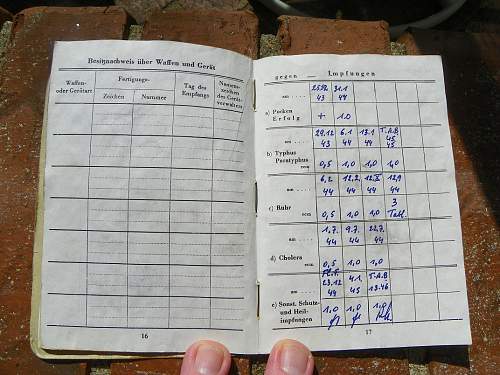 Besitznachweis über Waffen und Gerät
Waffen-
oder Geräteart
Fertigungs-
Zeichen Nummer
Tag des
Empfangs
Namens-
zeichen
des Gerät-
verwalters
16
gegen — Impfungen
am .... 31.1
43 44
a) Pocken
Erfolg + 1.0
am .... 29.12 6.1 13.1 T.A.B
43 44 44 45
b) Typhus
Paratyphus
ccm 0,5 1,0 1,0 1,0
am .... 6.2. 12.2. 12.9
44 44 44 44
c) Ruhr 3
ccm 0,5 1,0 1,0 Tabl.
am .... 1.7. 9.7. 22.7.
44 44 44
d) Cholera
ccm 0,5 1,0 1,0
am .... 23.12 4.1. T.A.B
44 45 13.46
e) Sonst. Schutz-
und Heil-
impfungen 1,0 1,0 1,0
17